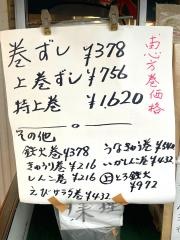 恵方巻価格
巻ずし ¥378
上巻ずし ¥756
特上巻 ¥1620
その他
鉄火巻 ¥378
きゅうり巻 ¥216
しんこ巻 ¥216
えびサラダ巻 ¥432
うなきゅう巻 ¥540
いかしそ巻 ¥432
上とろ鉄火
¥972